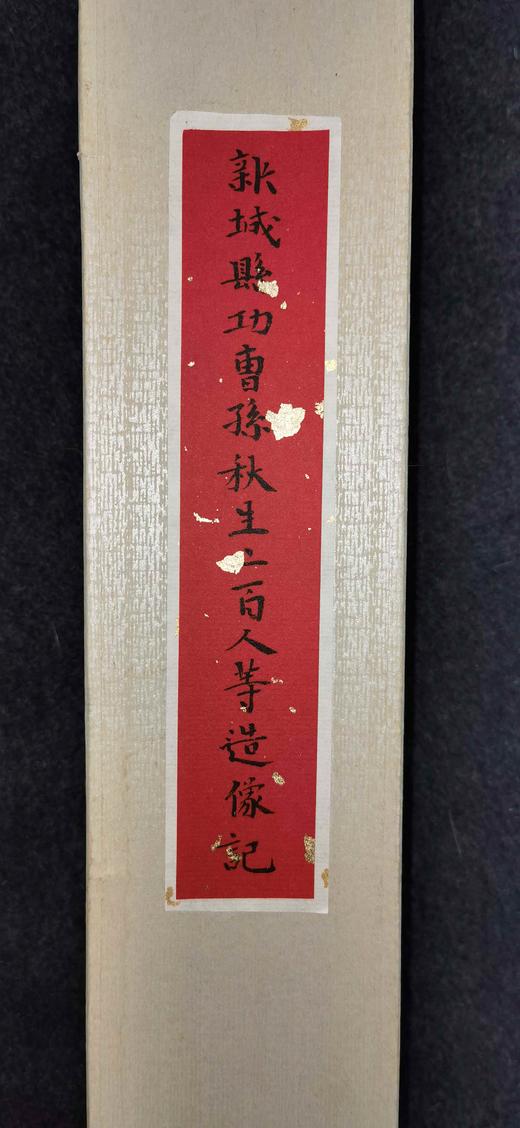 新城縣功曹孫秋生二百人等造像記